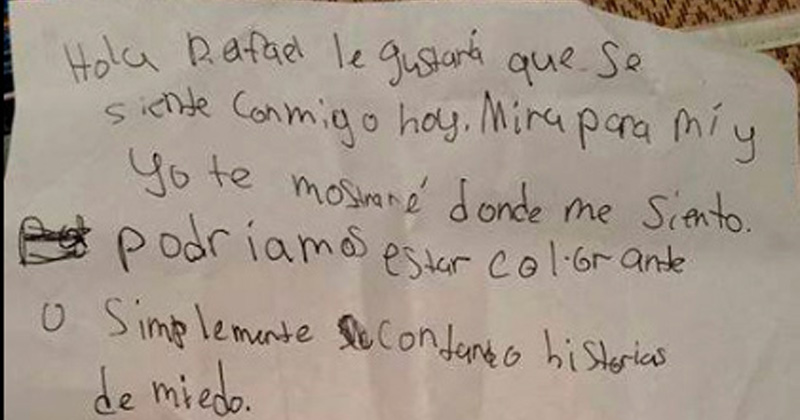 Hola Rafael le gustará que se
siente conmigo hoy. Mira para mí y
yo te mostraré donde me siento.
podríamos estar colorante
o simplemente contanto historias
de miedo.